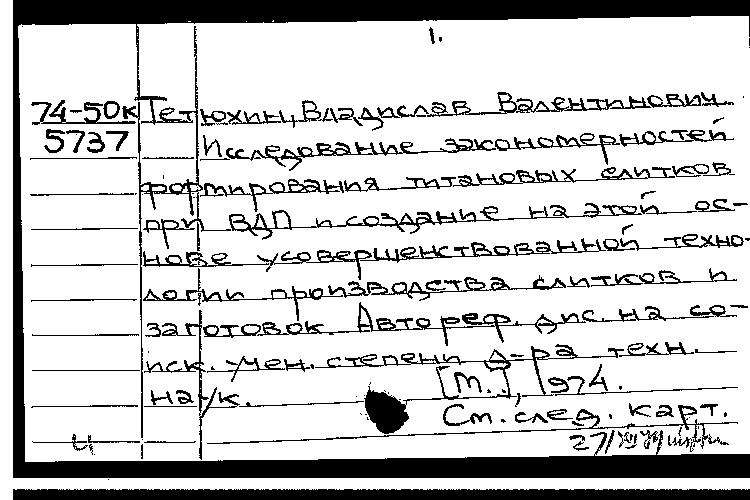 1.
74-50к Тетюхин, Владислав Валентинович
5737 Исследование закономерностей
формирования титановых слитков
при ВДП и создание на этой ос-
нове усовершенствованной техно-
логии производства слитков и
заготовок. Автореф. дис. на со-
иск. учен. степени д-ра техн.
наук. [М.], 1974.
См. след. карт.
ч 27/XII